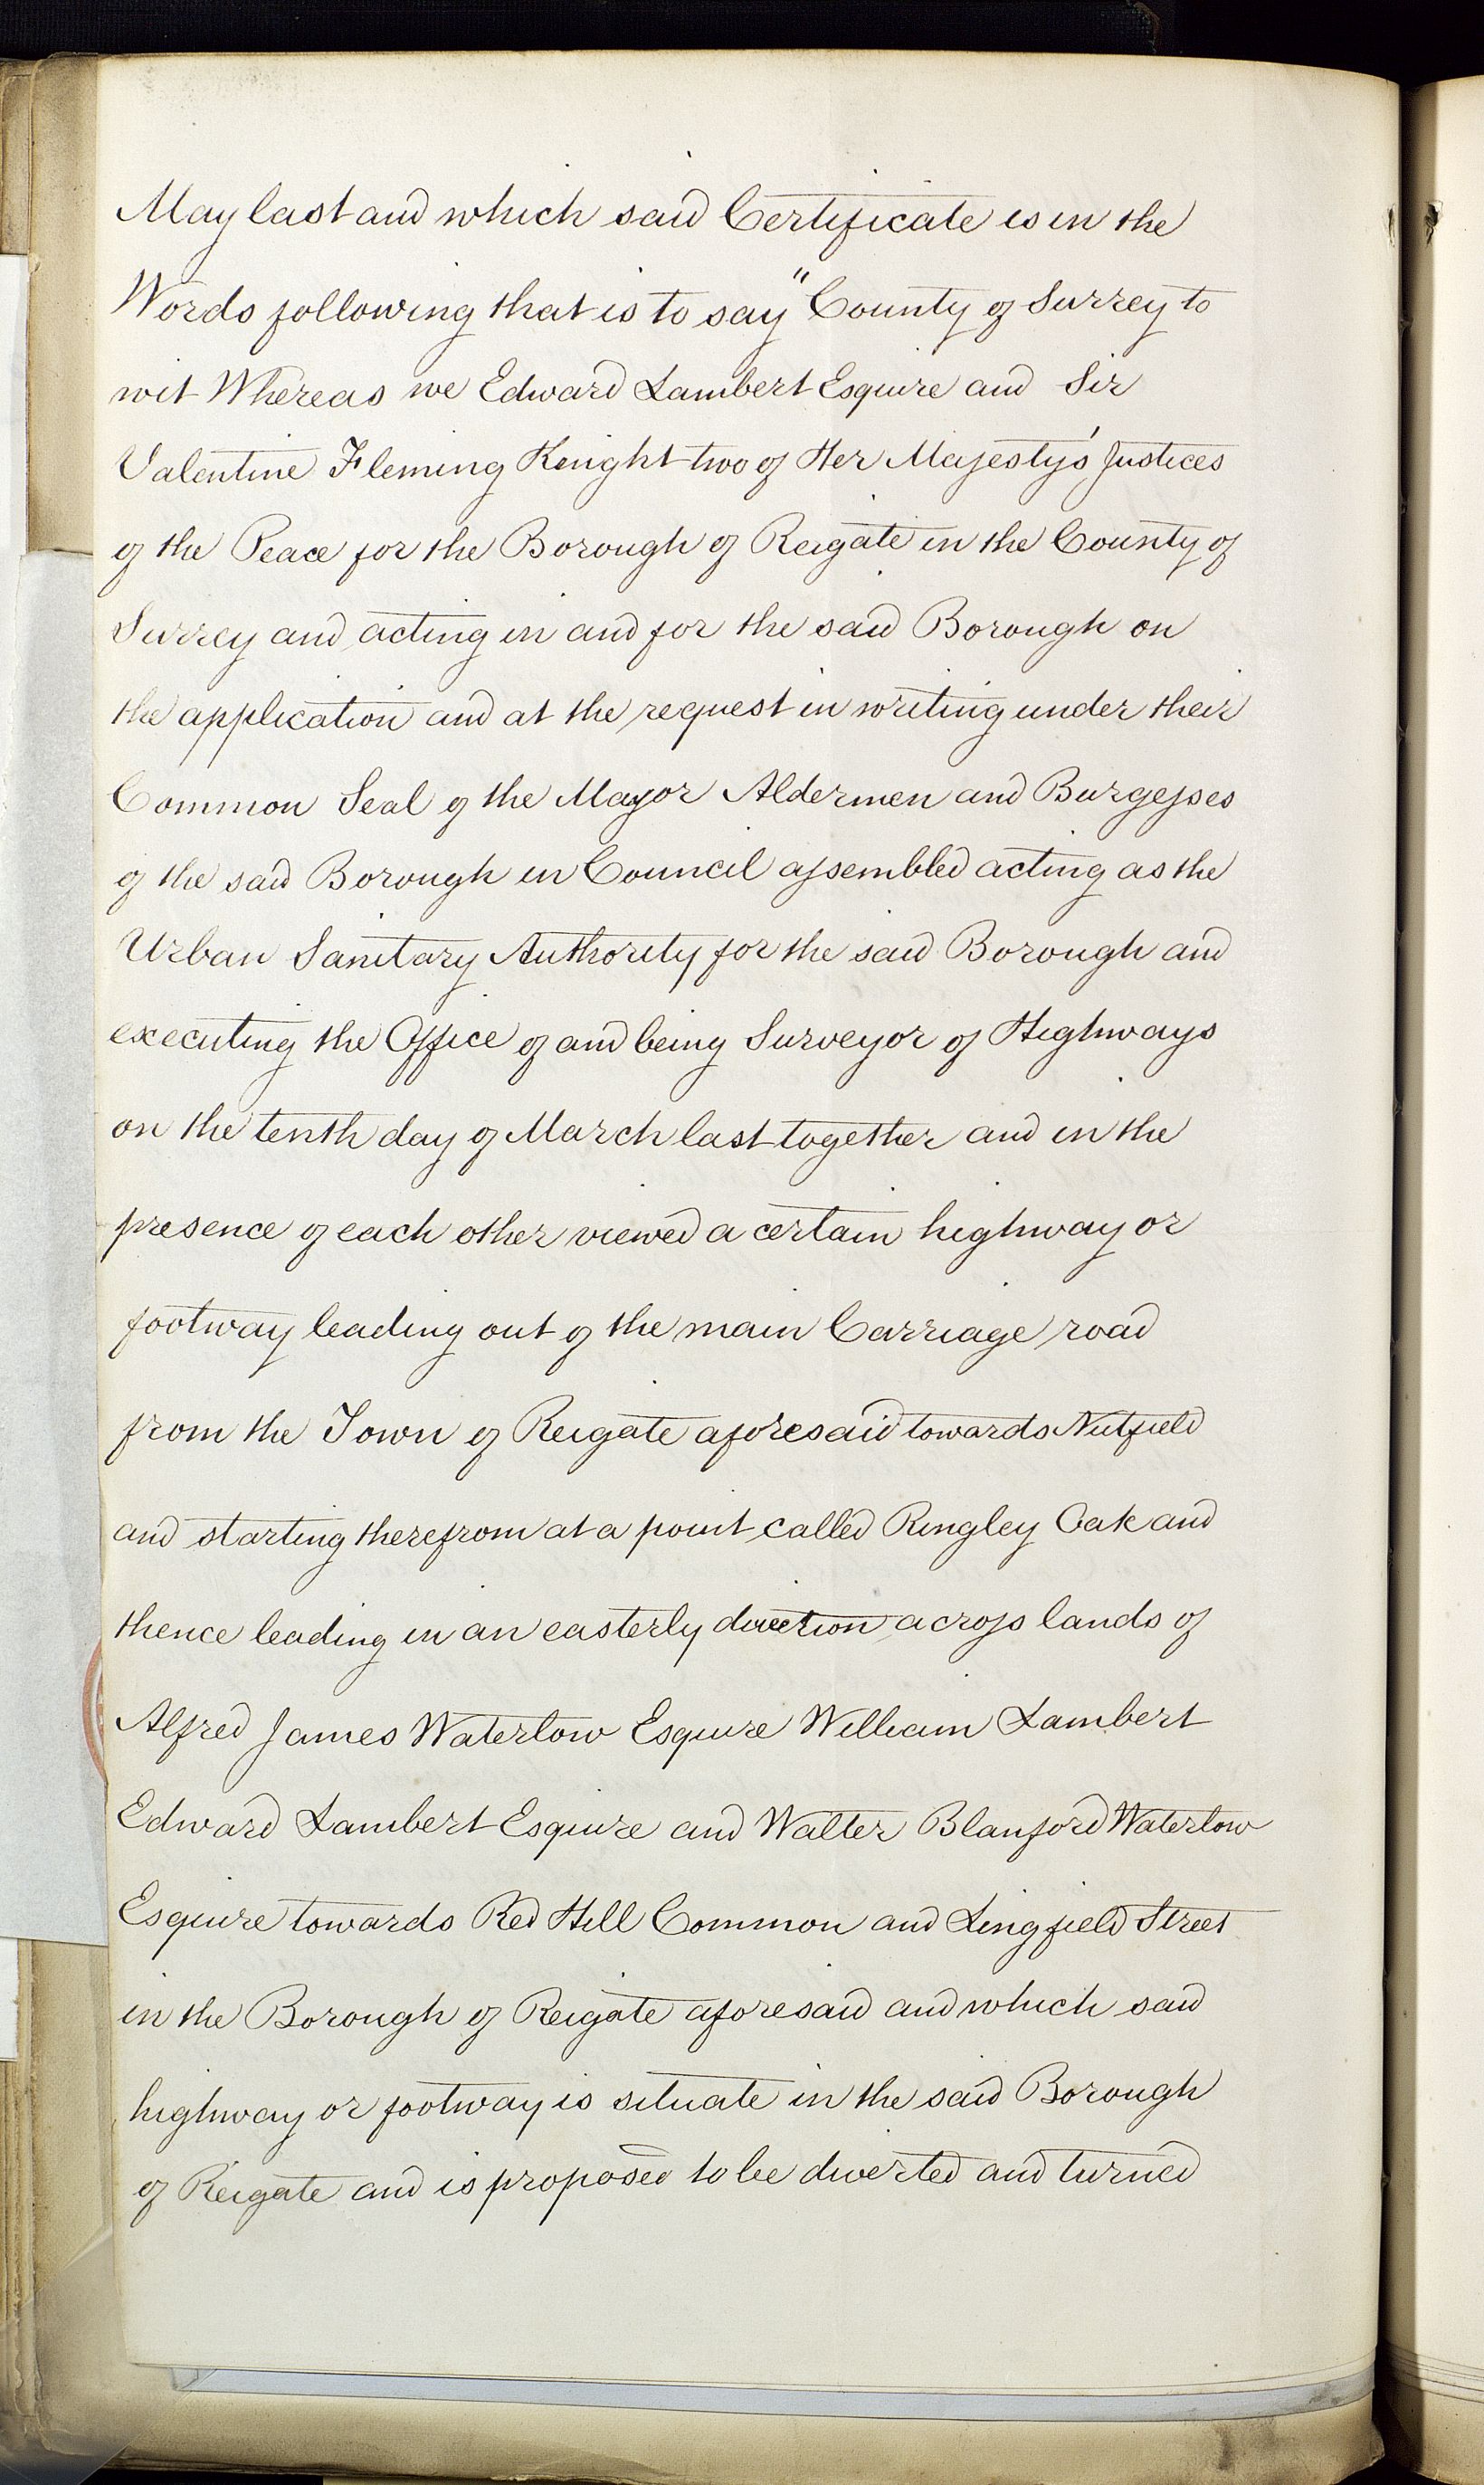 May last and which said Certificate is in the
Words following that is to say "County of Surrey to
wit Whereas we Edward Lambert Esquire and Sir
Valentine Fleming Knight two of Her Majesty's Justices
of the Peace for the Borough of Reigate in the County of
Surrey and acting in and for the said Borough on
the application and at the request in writing under their
Common Seal of the Mayor Aldermen and Burgesses
of the said Borough in Council assembled acting as the
Urban Sanitary Authority for the said Borough and
executing the Office of and being Surveyor of Highways
on the tenth day of March last together and in the
presence of each other viewed a certain highway or
footway leading out of the main Carriage road
from the Town of Reigate aforesaid towards Nutfield
and starting therefrom at a point called Ringley Oak and
thence leading in an easterly direction across lands of
Alfred James Waterlow Esquire William Lambert
Edward Lambert Esquire and Walter Blanford Waterlow
Esquire towards Red Hill Common and Lingfield Street
in the Borough of Reigate aforesaid and which said
highway or footway is situate in the said Borough
of Reigate and is proposed to be diverted and turned